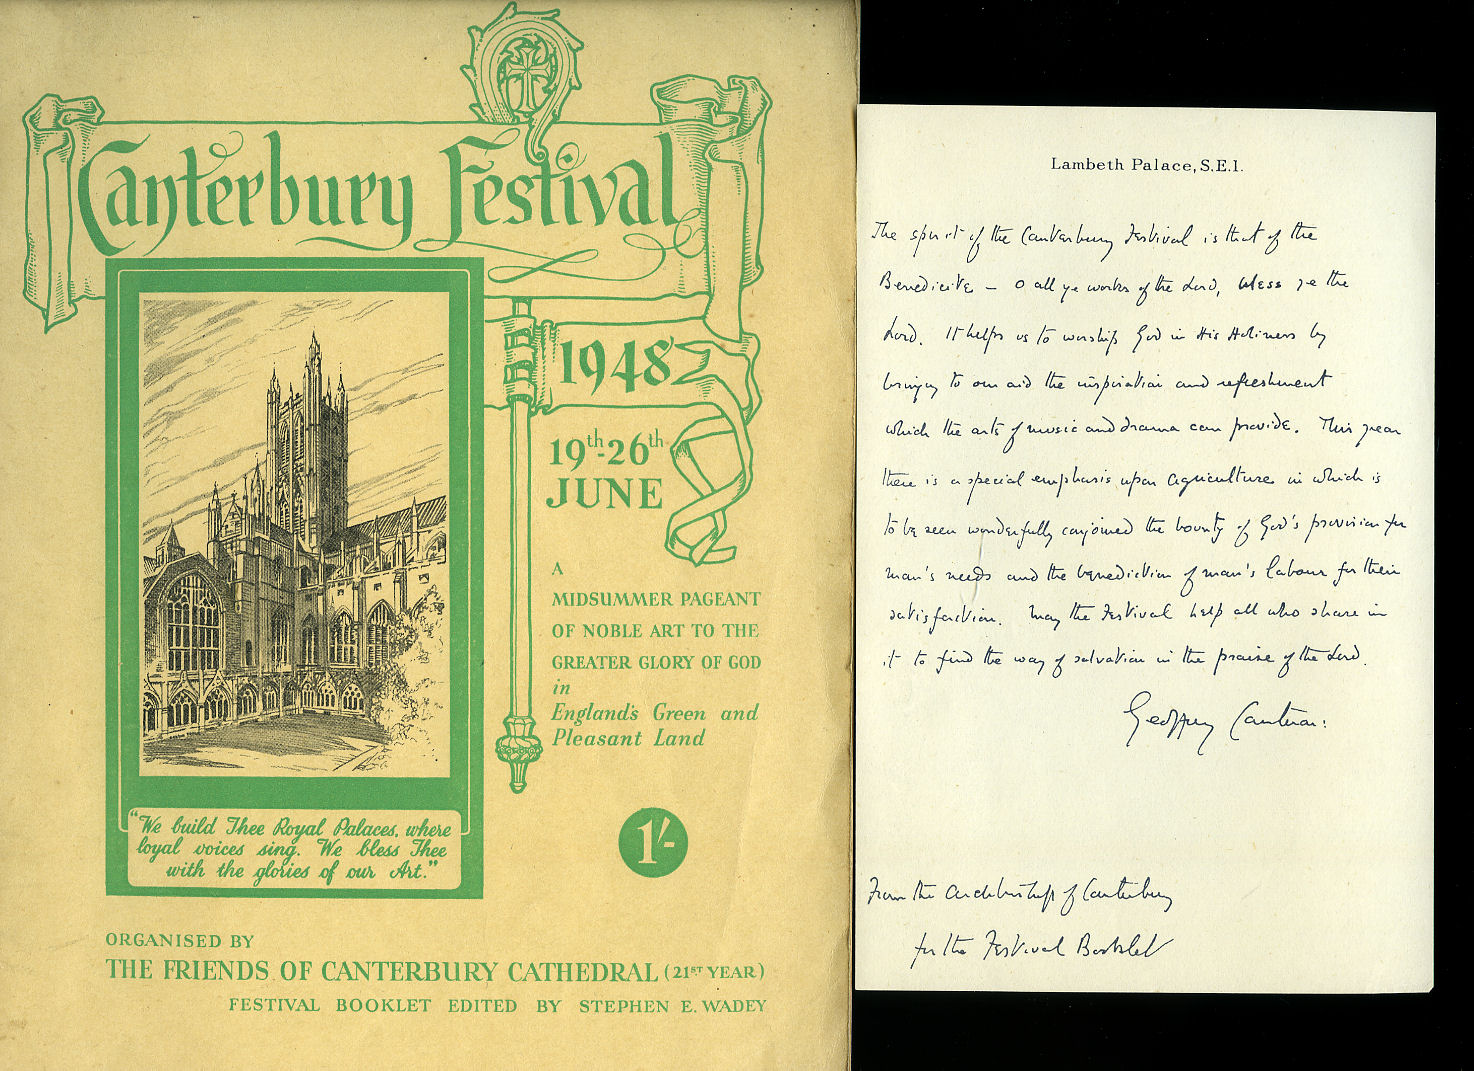 Canterbury Festival
1948
19th-26th
JUNE
A
MIDSUMMER PAGEANT
OF NOBLE ART TO THE
GREATER GLORY OF GOD
in
England's Green and
Pleasant Land
"We build Thee Royal Palaces, where
loyal voices sing. We bless Thee
with the glories of our Art."
1/-
ORGANISED BY
THE FRIENDS OF CANTERBURY CATHEDRAL (21ST YEAR)
FESTIVAL BOOKLET EDITED BY STEPHEN E. WADEY
Lambeth Palace, S.E.1.
The spirit of the Canterbury Festival is that of the
Benedicite - O all ye works of the Lord, bless ye the
Lord. It helps us to worship God in His Holiness by
bringing to our aid the inspiration and refreshment
which the arts of music and drama can provide. This year
there is a special emphasis upon agriculture in which is
to be seen wonderfully conjoined the bounty of God's provision for
man's needs and the benediction of man's labour for their
satisfaction. May the Festival help all who share in
it to find the way of salvation in the praise of the Lord.
Geoffrey Cantuar:
From the Archbishop of Canterbury
for the Festival Booklet